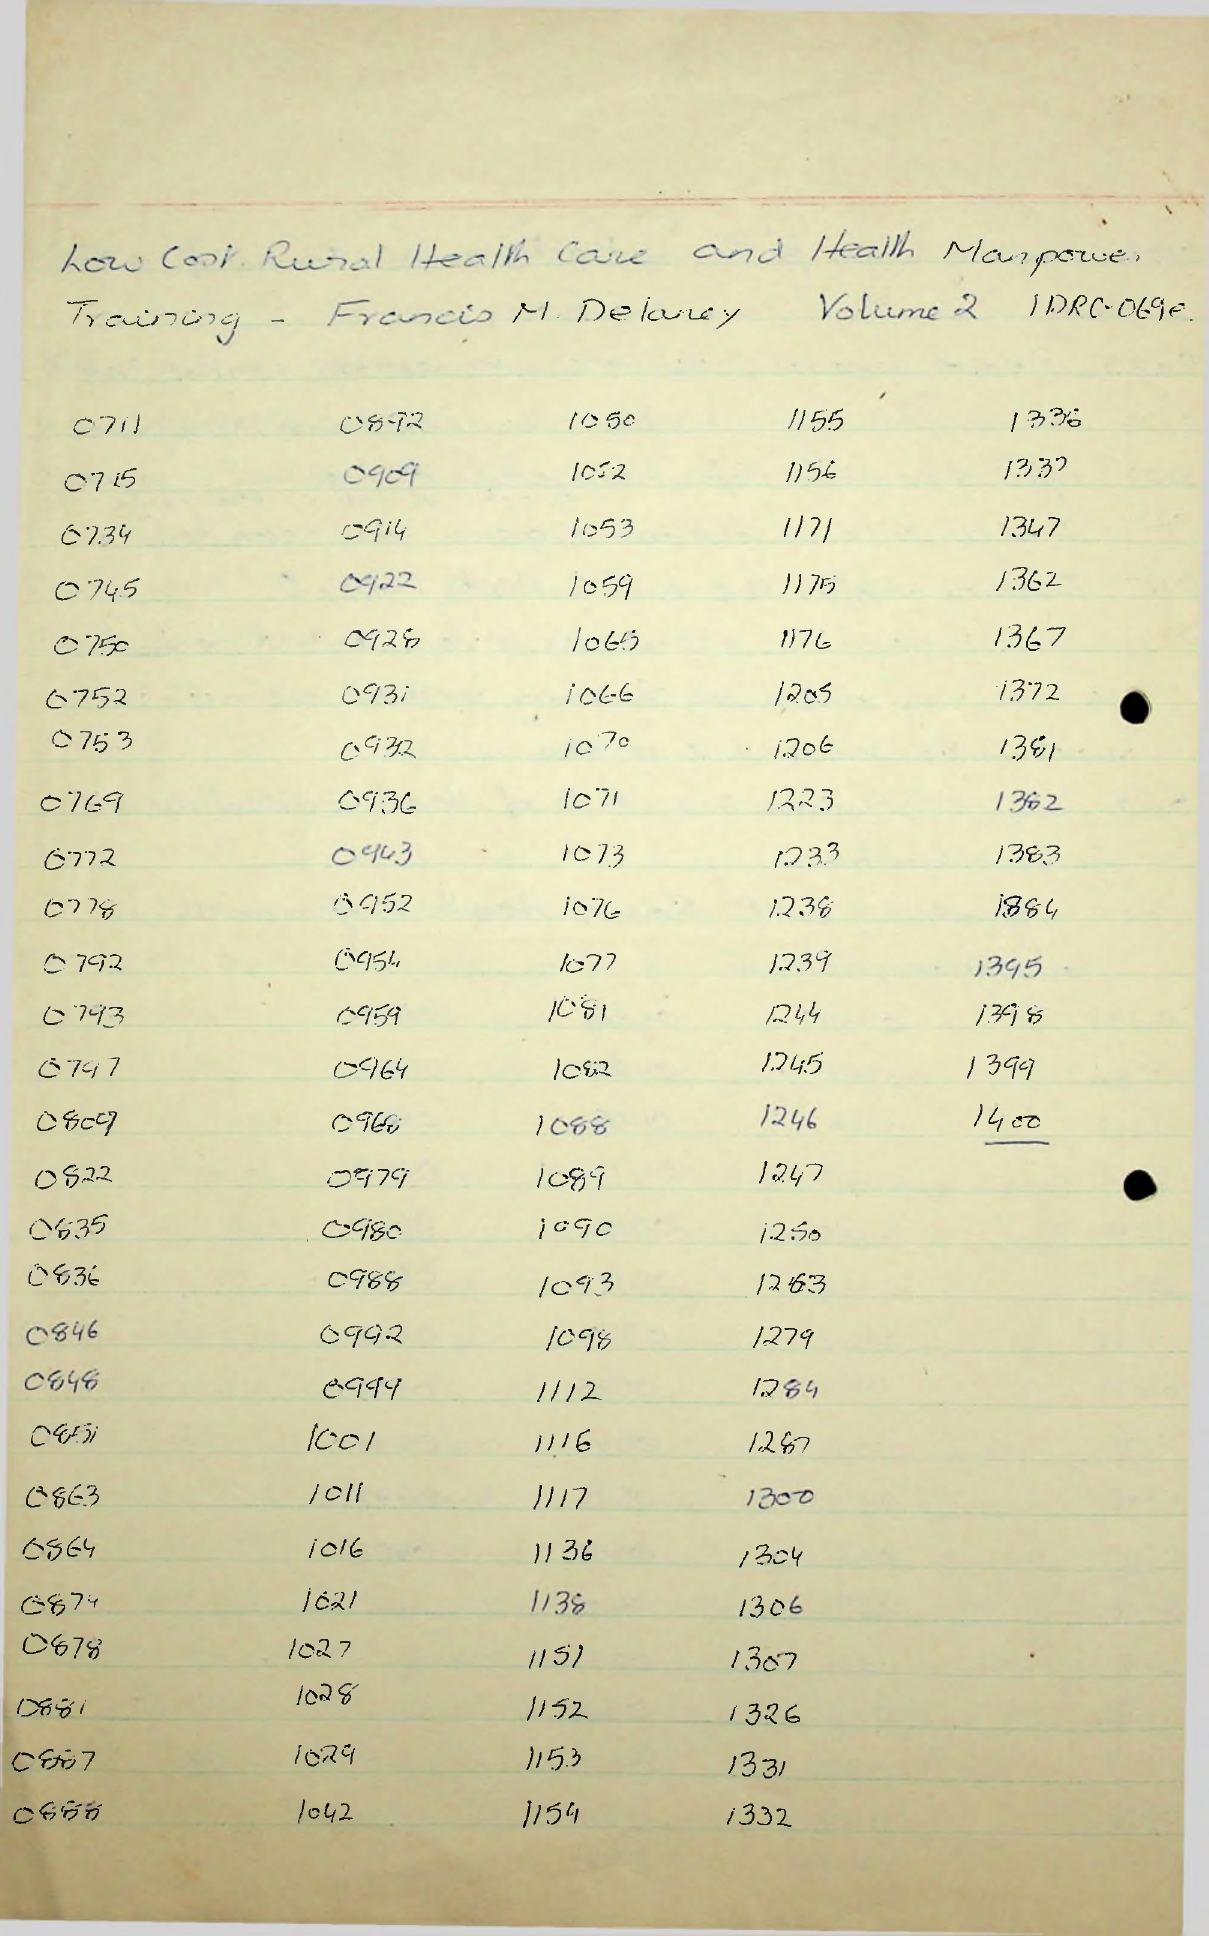 Low Cost Rural Health Care and Health Manpower
Training - Francis M. Delaney Volume 2 IDRC-069e.
0711 0892 1050 1155 1336
0715 0909 1052 1156 1337
0734 0914 1053 1171 1347
0745 0922 1059 1175 1362
0750 0928 1065 1176 1367
0752 0931 1066 1205 1372
0753 0932 1070 1206 1381
0769 0936 1071 1223 1382
0772 0943 1073 1233 1383
0778 0952 1076 1238 1384
0792 0954 1077 1239 1395
0793 0959 1081 1244 1398
0797 0964 1082 1245 1399
0809 0968 1088 1246 1400
0822 0979 1089 1247
0835 0980 1090 1250
0836 0988 1093 1263
0846 0992 1098 1279
0848 0994 1112 1284
0851 1001 1116 1287
0863 1011 1117 1300
0864 1016 1136 1304
0874 1021 1138 1306
0878 1027 1151 1307
0881 1028 1152 1326
0887 1029 1153 1331
0888 1042 1154 1332